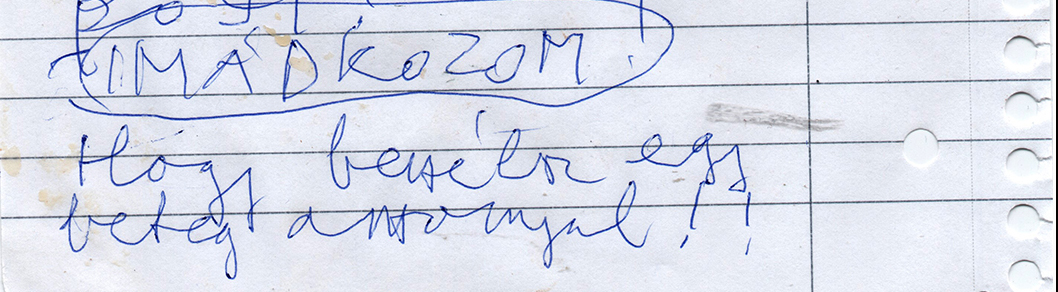 IMÁDKOZOM!
Hogy beszélsz egy
beteg asszonnyal!!